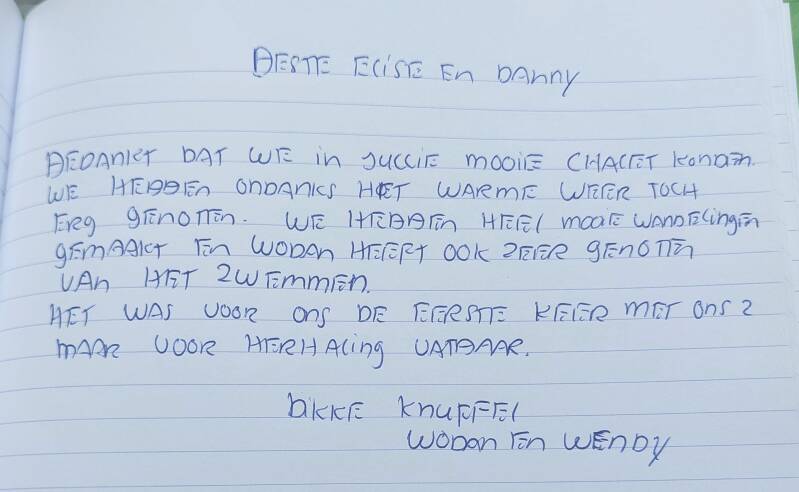 BESTE ELISE En DAnny
BEDANKT DAT WE in JULLIE MOOIE CHALET Konden.
WE HEBBEN ONDANKS HET WARME WEER TOCH
Erg GENOTTEN. WE HEBBEN HEEL mooie WANDELingEn
GEMAAKT EN WODAN HEEFT OOK ZEER GENOTTEN
VAn HET ZWEMMEN.
HET WAS VOOR ons DE EERSTE KEER MET ons 2
MAAR VOOR HERHALing VATBAAR.
DIKKE KnuFFEL
WODAn En WENDY